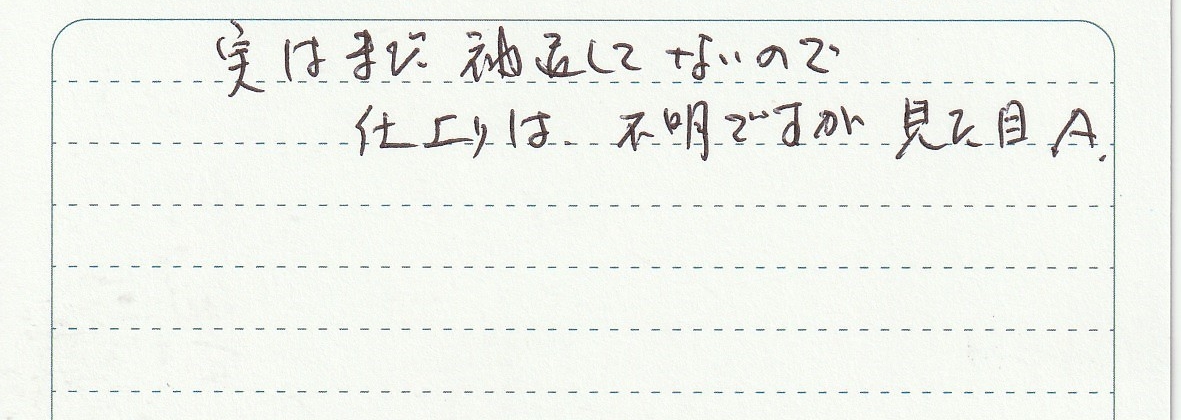 実はまだ袖通してないので
仕上りは、不明ですが見た目A.